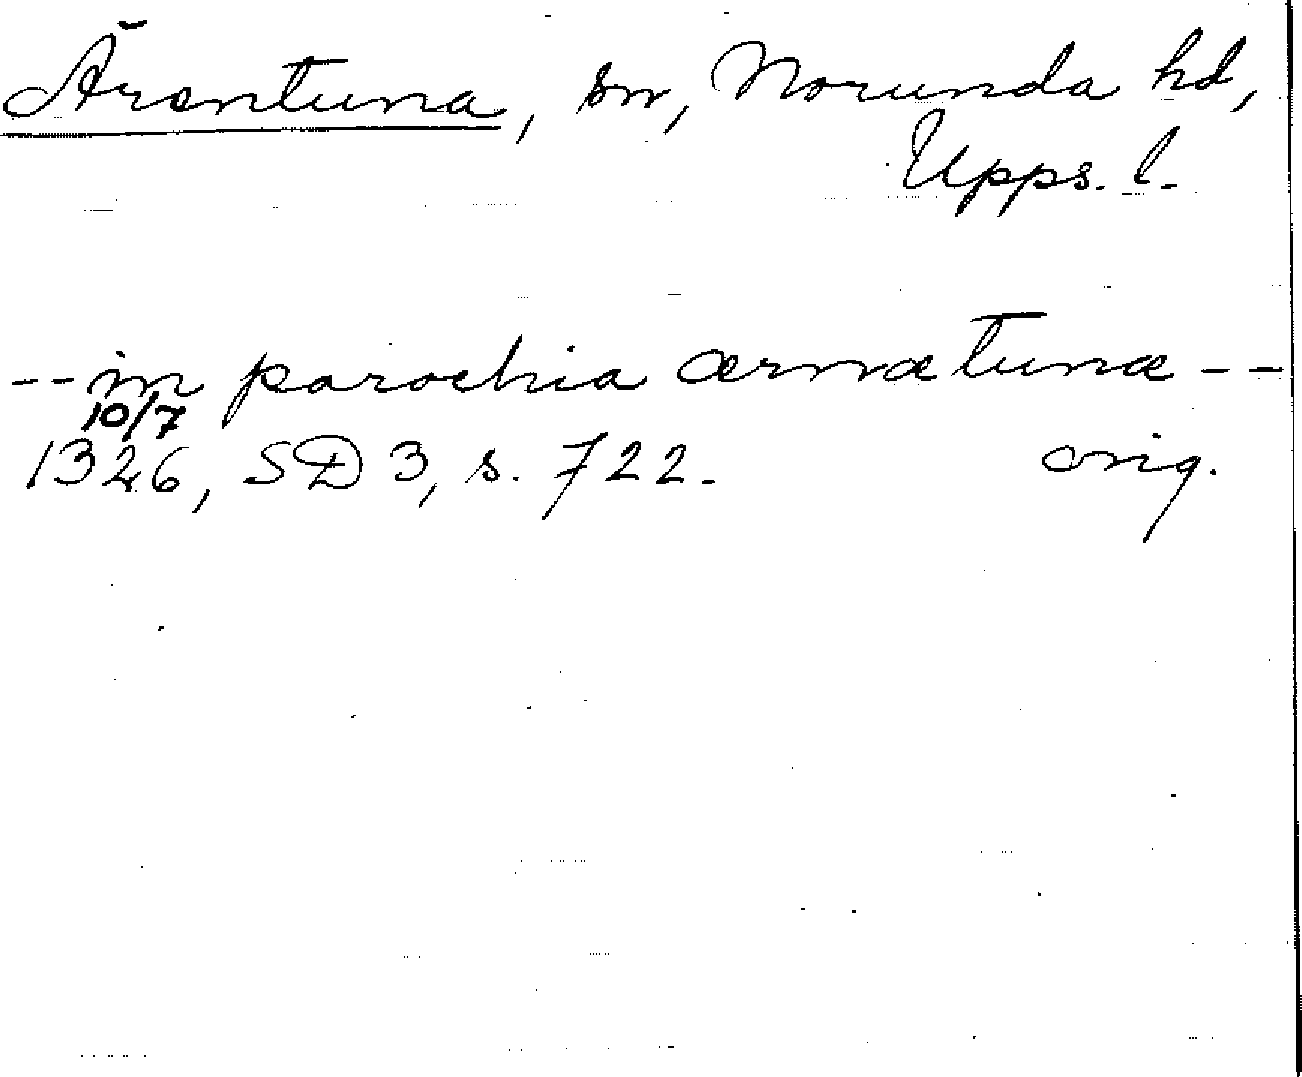 Ärentuna, sn, Norunda hd,
Upps. l.
-- in parochia ærnætunæ --
10/7
1326, SD 3, s. 722. orig.